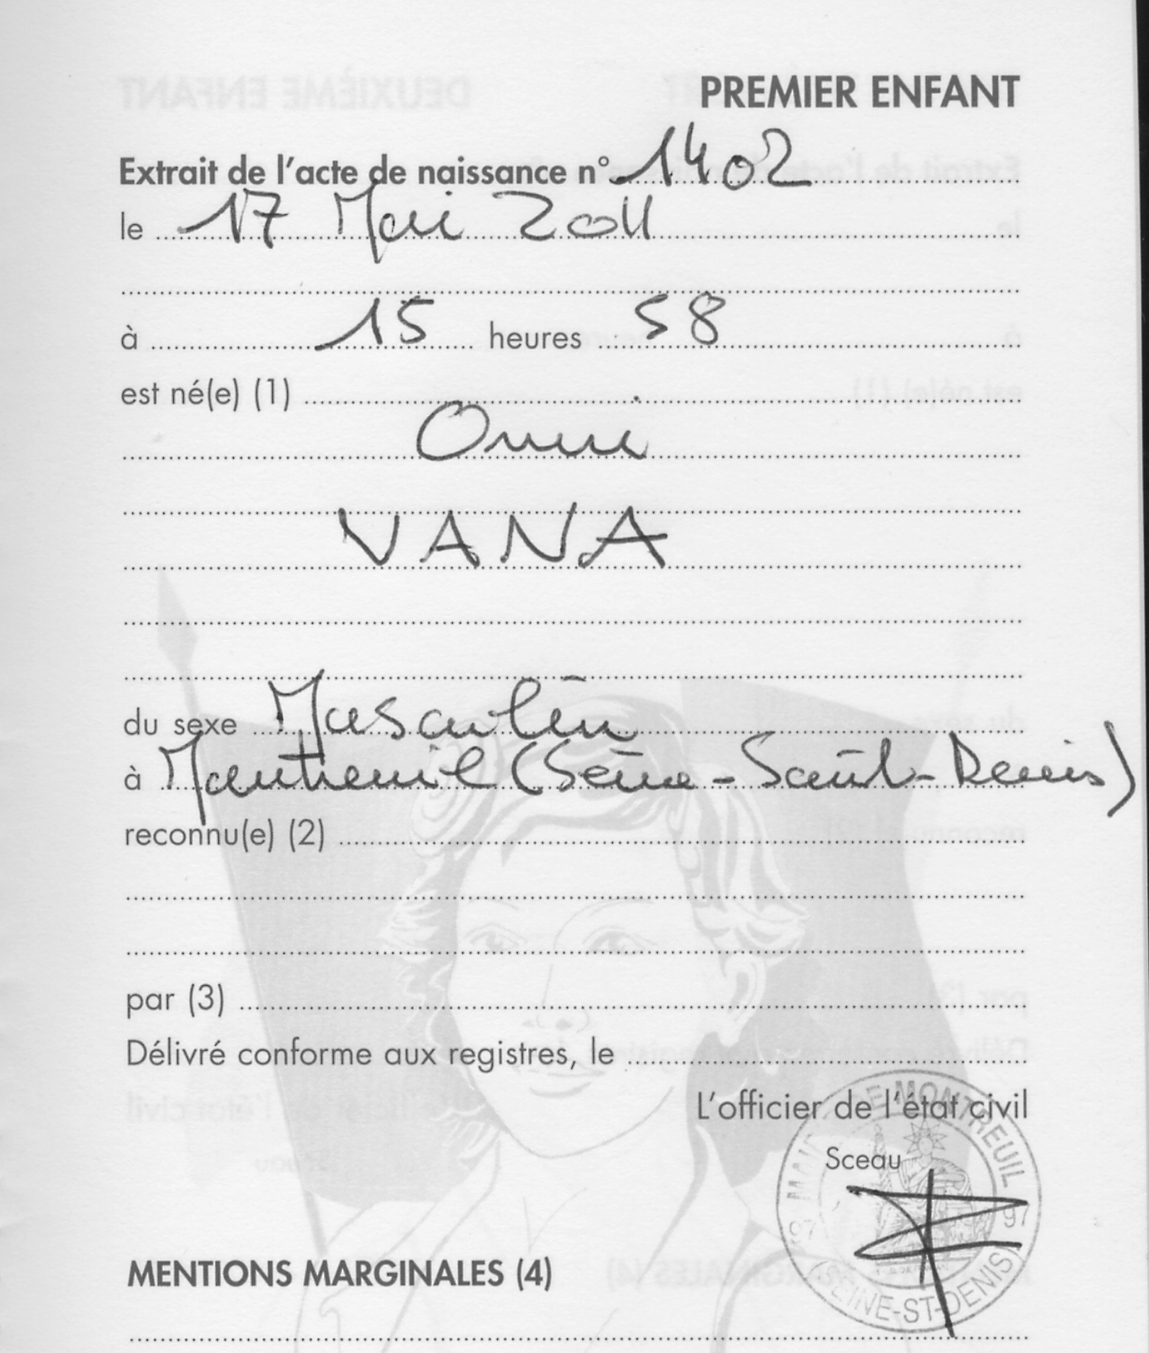 PREMIER ENFANT
Extrait de l'acte de naissance n° 1402
le 17 Mai 2011
à 15 heures 58
est né(e) (1)
VANA
du sexe Masculin
à Montreuil (Seine-Saint-Denis)
reconnu(e) (2)
par (3)
Délivré conforme aux registres, le
L'officier de l'état civil
Sceau
MAIRIE DE MONTREUIL
97 97
(SEINE-ST-DENIS)
MENTIONS MARGINALES (4)